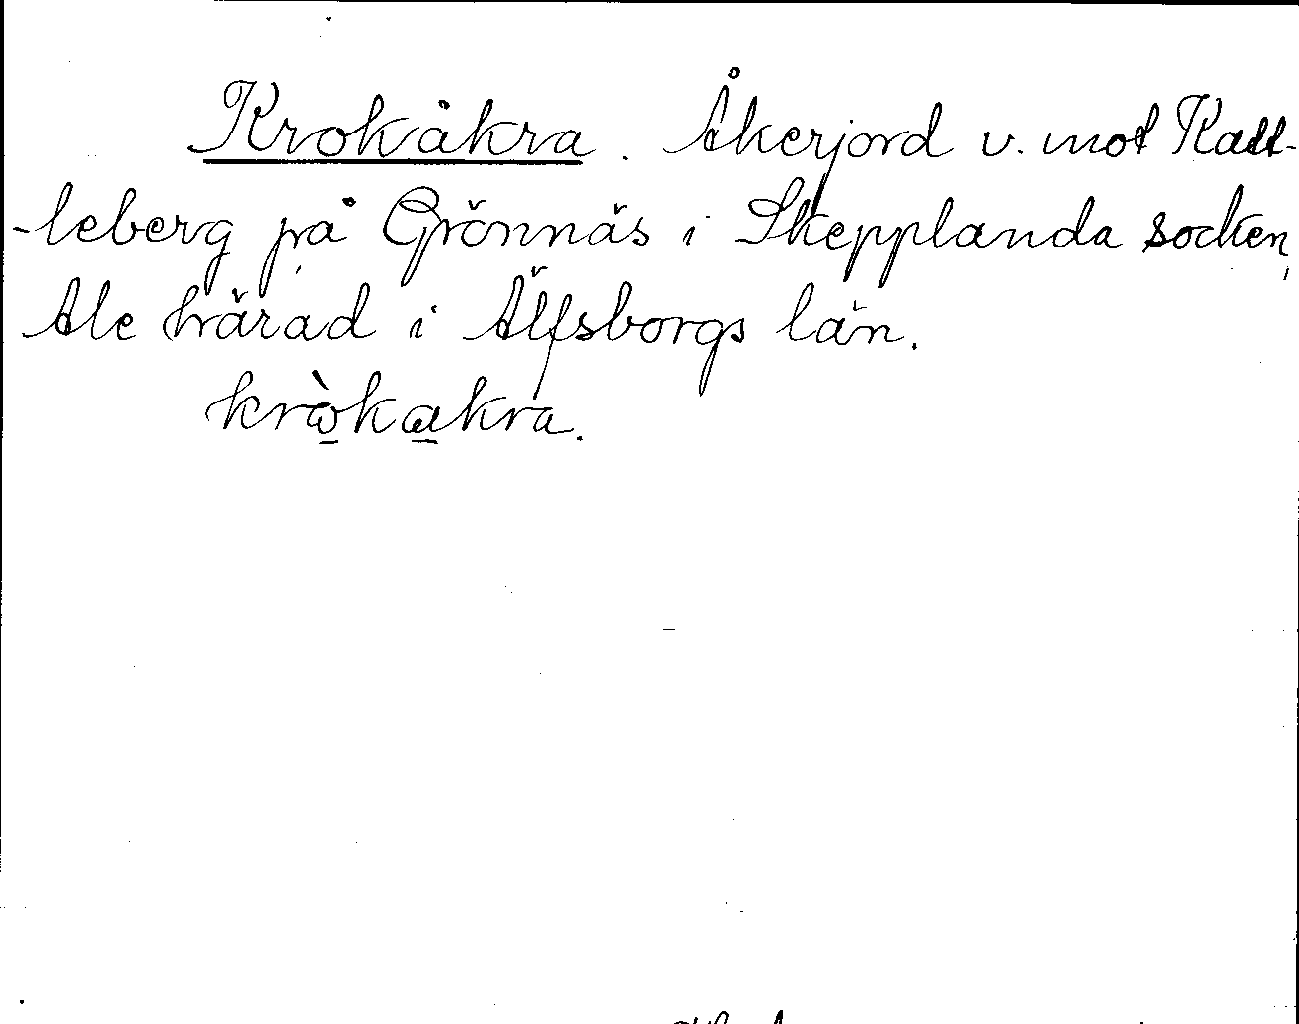 Krokåkra. Åkerjord v. mot Katt-
-leberg på Grönnäs i Skepplanda socken,
Ale härad i Älfsborgs län.
krὼkakra.